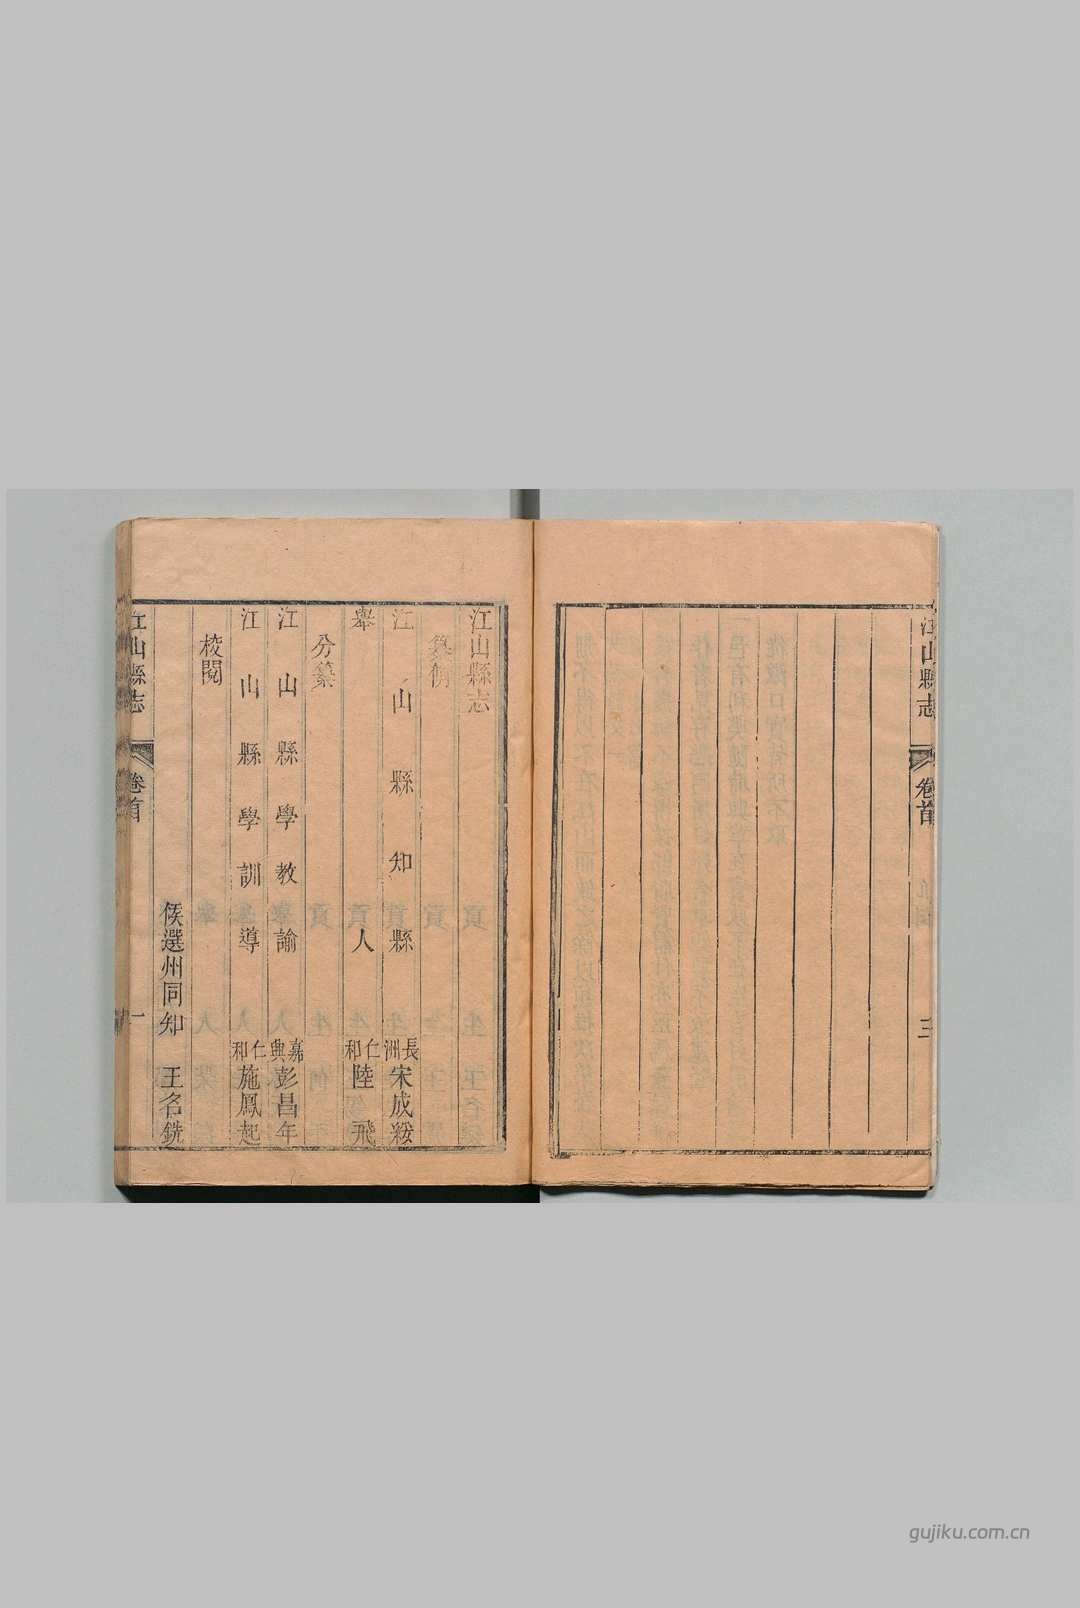 江山縣志
卷首
三
江山縣志
纂脩
江山縣知縣 長洲 宋成綏
舉人 仁和 陸飛
分纂
江山縣學教諭 嘉興 彭昌年
江山縣學訓導 仁和 施鳳起
校閱
候選州同知 王名銑
江山縣志
卷首
一
gujiku.com.cn